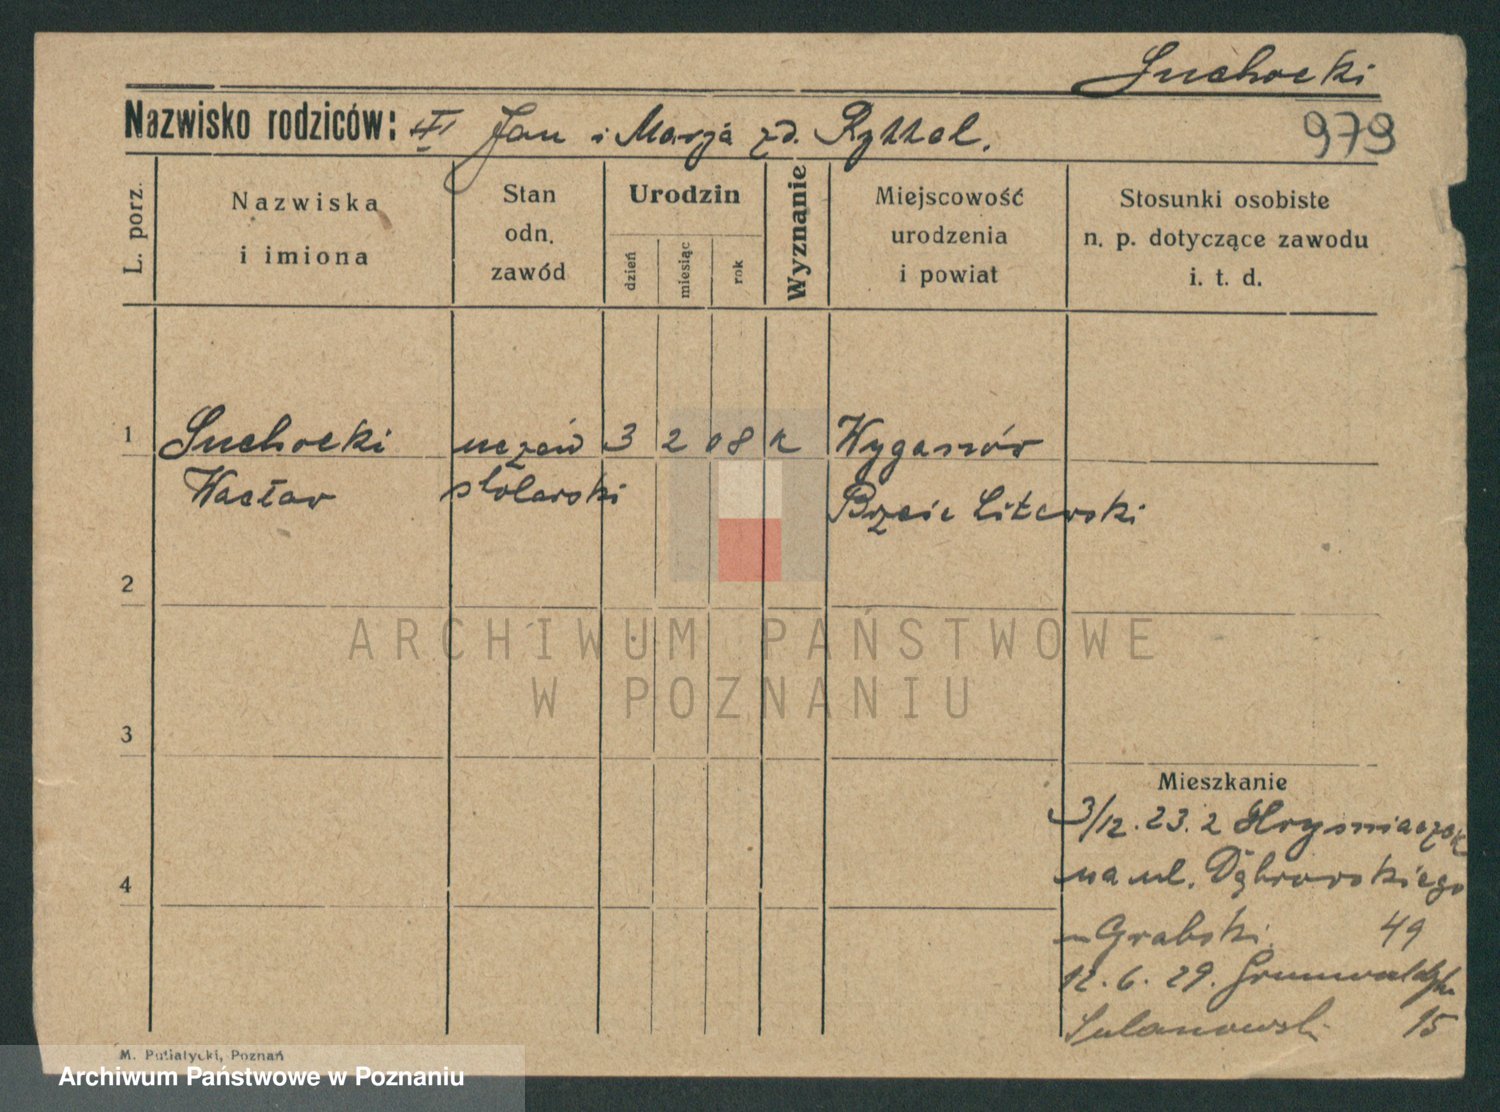 Suchocki
Nazwisko rodziców: Jan i Marja zd. Ryttel.
979
L. porz.
Nazwiska
i imiona
Stan
odn.
zawód
Urodzin
dzień
miesiąc
rok
Wyznanie
Miejscowość
urodzenia
i powiat
Stosunki osobiste
n. p. dotyczące zawodu
i. t. d.
1 Suchocki uczeń 3 2 08 k Wyganów
Wacław stolarski Brześć Litewski
2
ARCHIWUM PAŃSTWOWE
W POZNANIU
3
Mieszkanie
3/12. 23. z Hrysniaczek
na ul. Dąbrowskiego
4
u Grabski. 49
12. 6. 29. Grunwaldzka
15
M. Putiatycki, Poznań
Archiwum Państwowe w Poznaniu